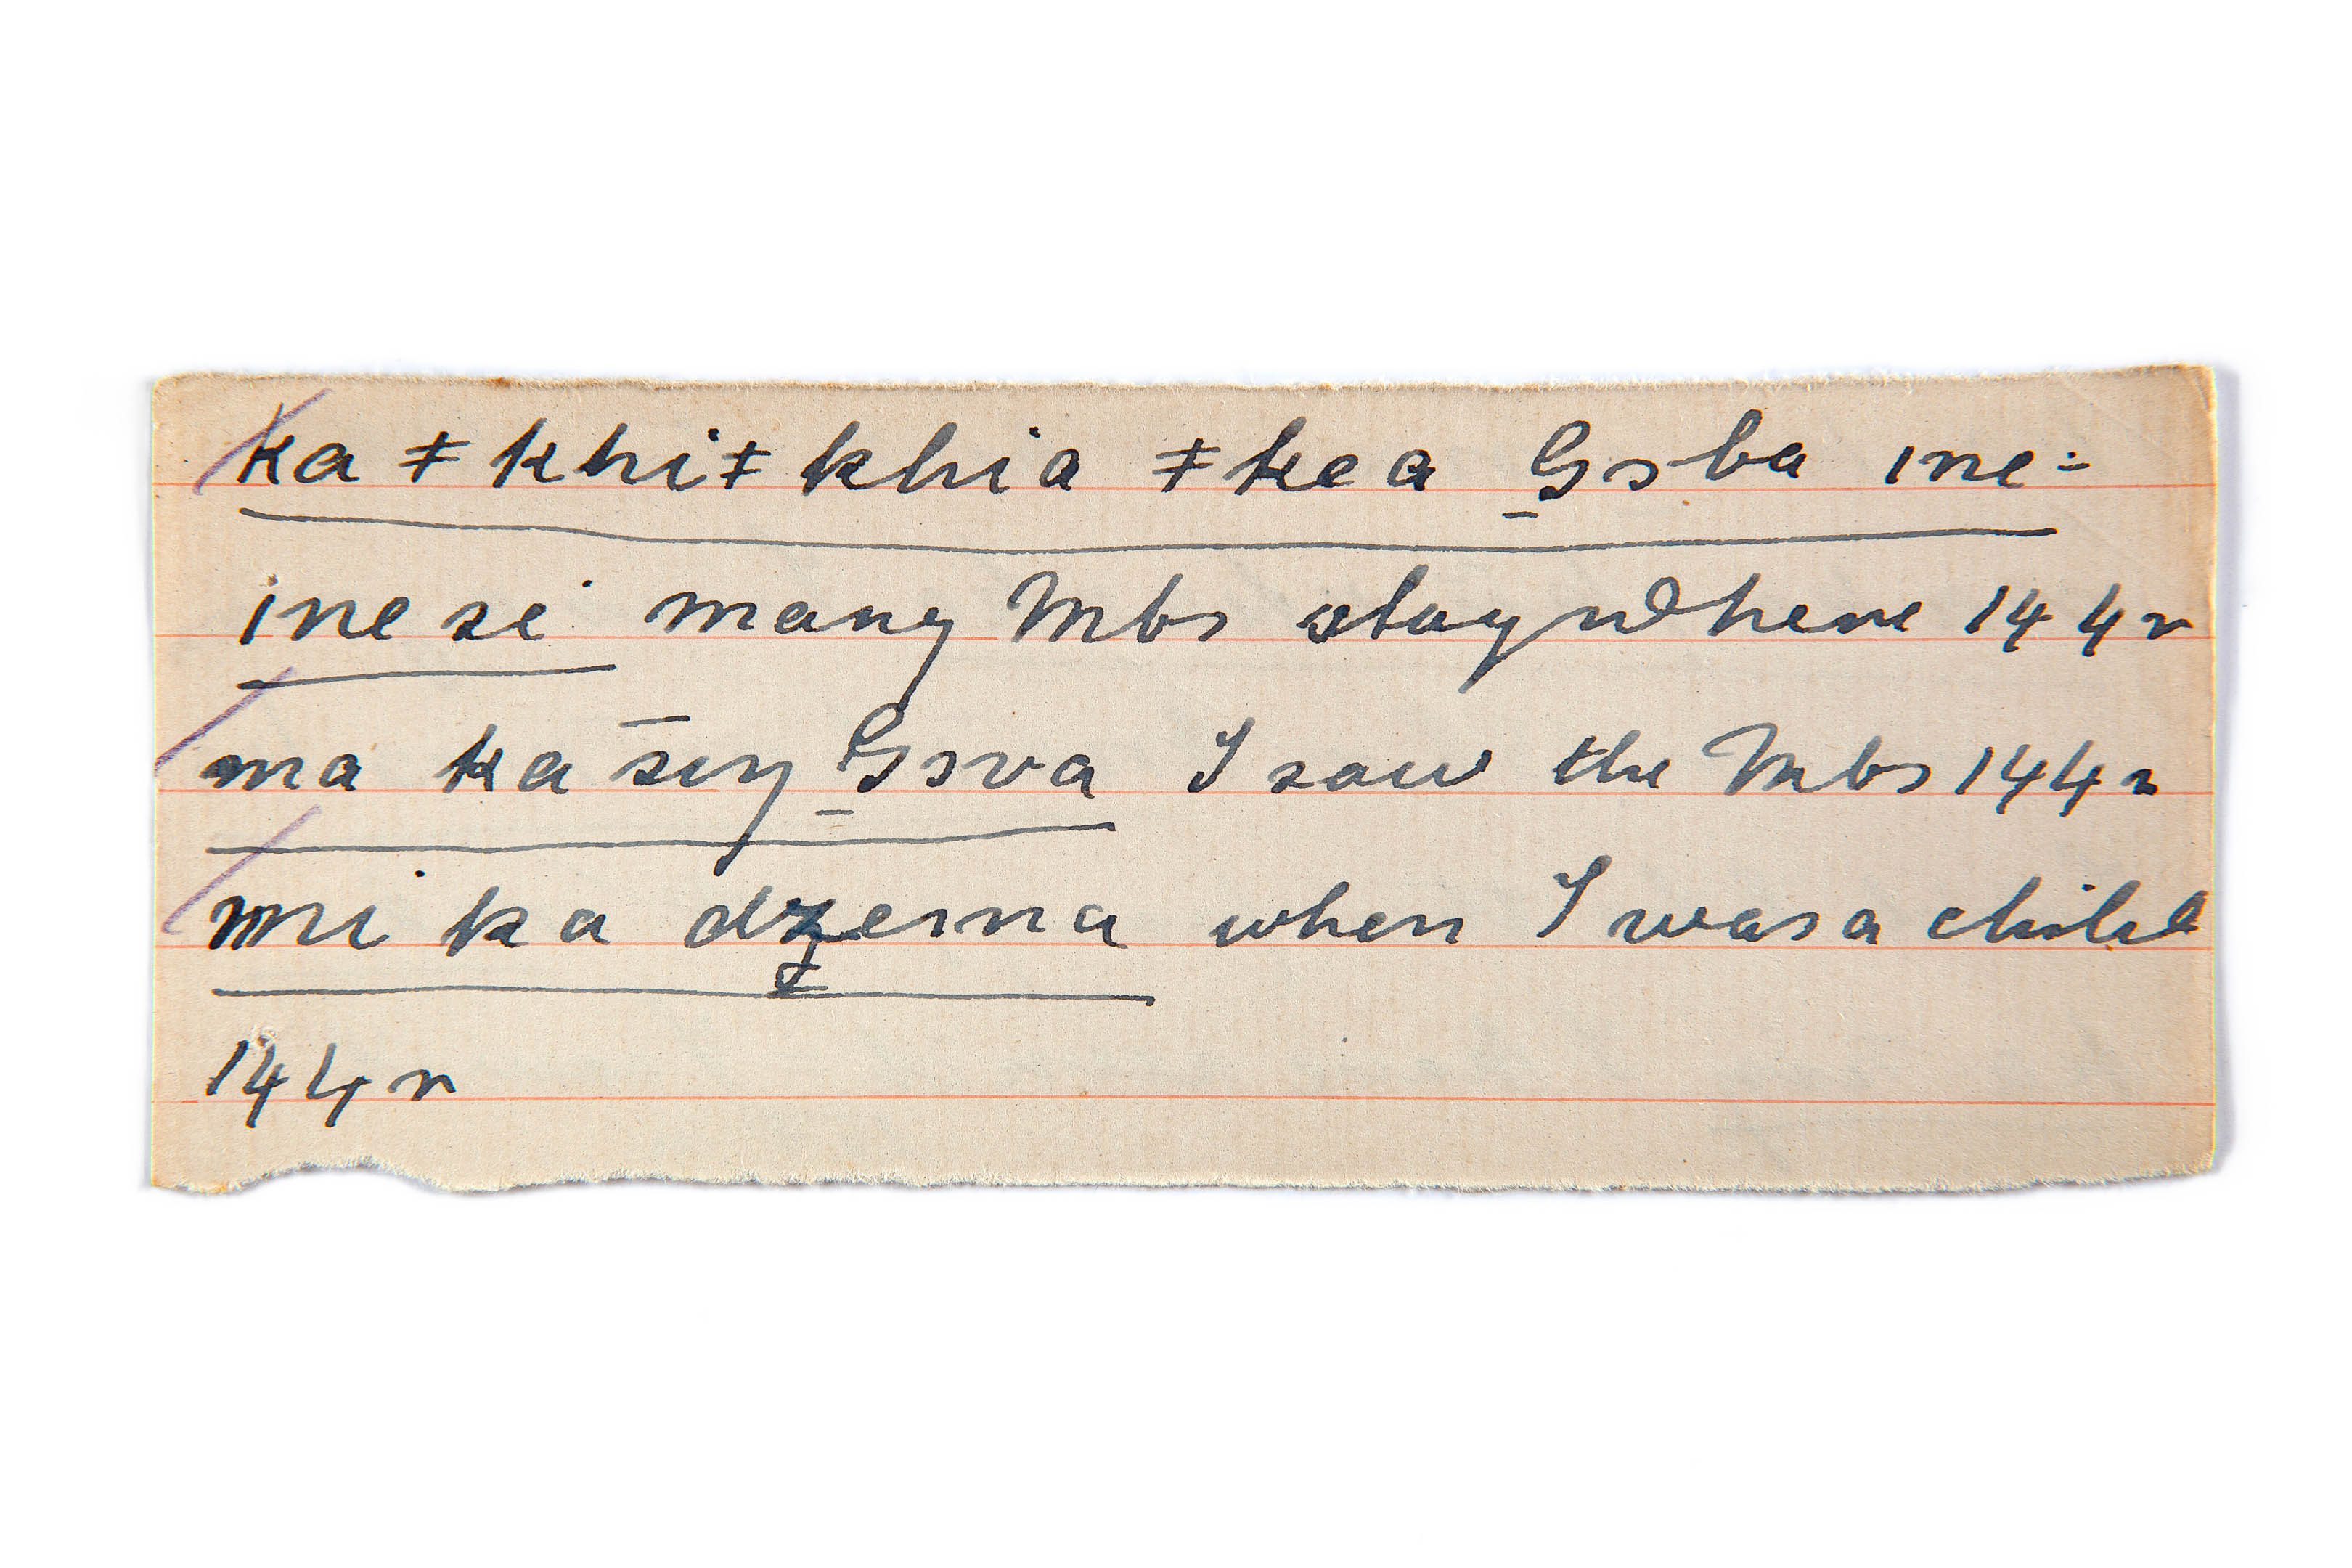 ka ǂ khiǂ khia ǂkea G̱sba ine:
inesi many Mbs stay where 144r
ma ka s̄iŋ G̱sva I saw the Mbs 144r
mi ka dʒesna when I was a child
144r